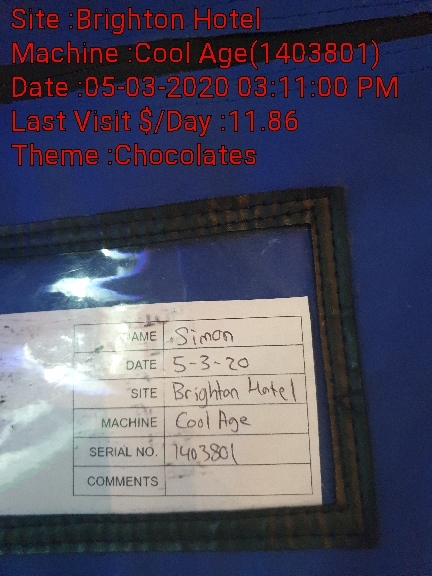 Site :Brighton Hotel
Machine :Cool Age(1403801)
Date :05-03-2020 03:11:00 PM
Last Visit $/Day :11.86
Theme :Chocolates
NAME Simon
DATE 5-3-20
SITE Brighton Hotel
MACHINE Cool Age
SERIAL NO. 1403801
COMMENTS